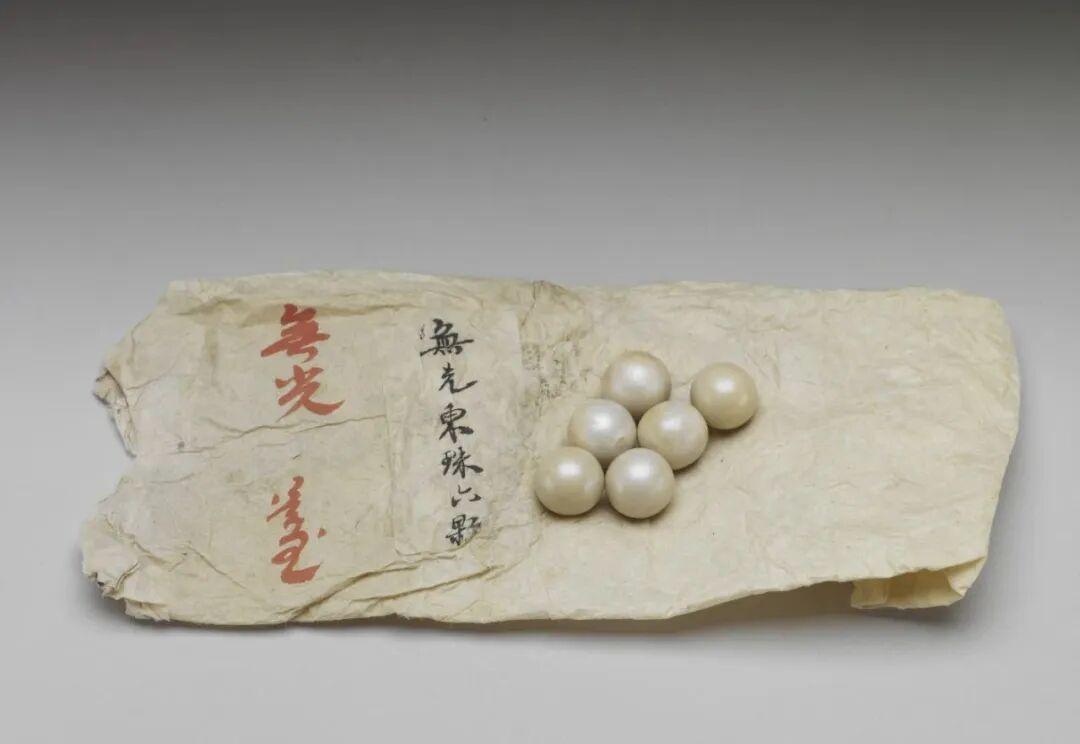 無光東珠六顆
無光